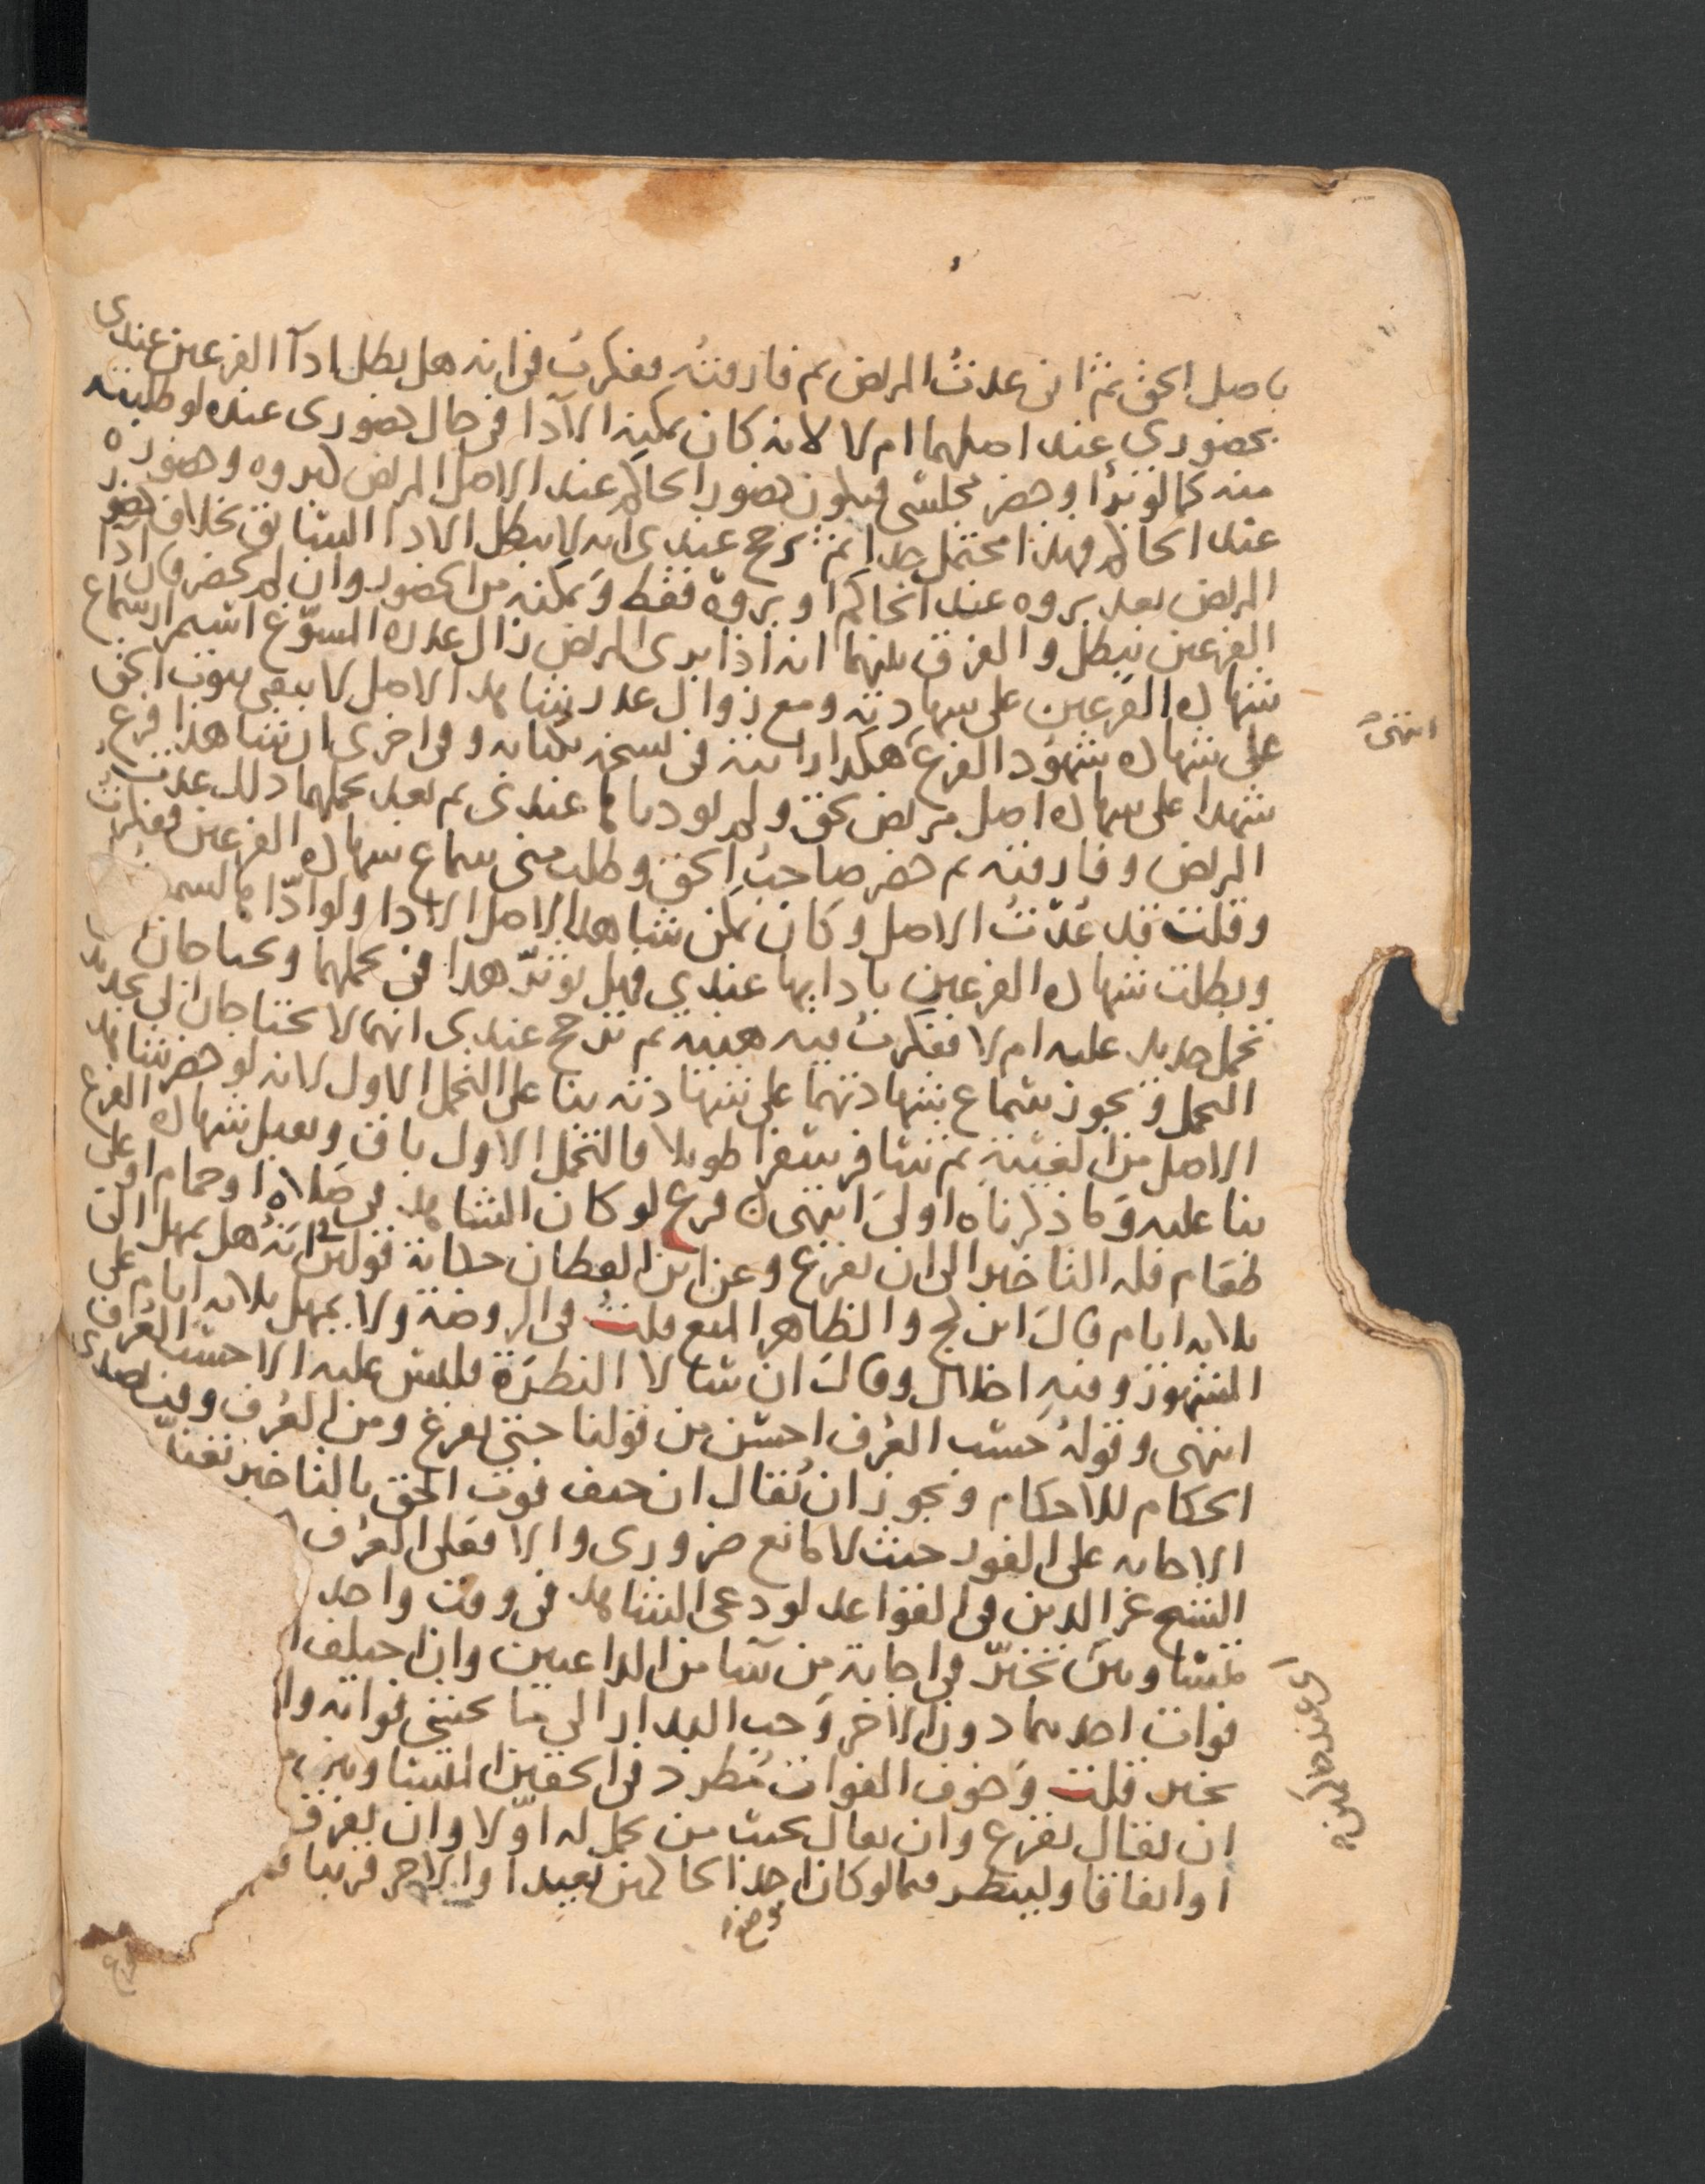 باصل الحق ثم اني عدتُ المريض ثم فارقته ففكرت في انه هل يطل ادآ الفرعين عندي
بحضوري عند اصلهما ام لا لانه كان يمكنه الآدا في حال حضوري عنده لو طلبته
منه كما لو برأ وحضر مجلسي فيكون حضور الحاكم عند الاصل المريض كبروه وحضوره
عند الحاكم وهذا محتمل جدا ثم ترجح عندي انه لا يبطل الادا السابق بخلاف حضور
المريض بعد بروه عند الحاكم او بروه فقط وتمكنه من الحضور وان لم يحضر فان ادا
الفرعين يبطل والفرق بينهما انه اذا برى المريض زال عذره المسوّغ استمر السماع
شهادة الفرعين على شهادته ومع زوال عذر شاهد الاصل لا يبقى ثبوت الحق
على شهادة شهود الفرع هكذا رايته في نسخة بكتابه وفي اخرى ان شاهدا فرع
شهدا على شهادة اصل مريض بحق ولم يودياها عندي ثم بعد تحملهما ذلك عدتُ
المريض وفارقته ثم حضر صاحبُ الحق وطلب مني سماع شهادة الفرعين ففكرتُ
وقلت قد عُدتُ الاصل وكان يمكن شاهد الاصل الادا ولو ادّاها لسم
وبطلت شهادة الفرعين بادايها عندي فهل يوثر هذا في تحملهما ويحتاجان
تحمل جديد عليه ام لا ففكرتُ فيه هنيه ثم ترجح عندي انهما لا يحتاجان الى تجديد
التحمل ويجوز سماع شهادتهما على شهادته بنا على التحمل الاول لانه لو حضر شاهد
الاصل من الغيبة ثم سافر سفرا طويلا فالتحمل الاول باق ويقبل شهادة الفرع
بنا عليه وما ذكرناه اولى انتهى فرع لو كان الشاهد في صلاة او حمام او على
طعام فله التاخير الى ان يفرغ وعن ابن القطان حكاية قولين انه هل يمهل الى
ثلاثة ايام قال ابن كج والظاهر المنع قلتُ في الروضة ولا يمهل ثلاثة ايام على
المشهور وفيه اخلال وقال ان سالا النظرة فليس عليه الا حسب العُرف
انتهى وقولهُ حسب العُرف احسن من قولنا حتى يفرغ ومن العُرف وقت تصدي
الحكام للاحكام ويجوز ان يُقال ان خيف فوت الحق بالتاخير تعيّ
الاجابه على الفور حيث لا مانع ضروري والا فعلى العُرف
الشيخ عز الدين في القواعد لو دعى الشاهد في وقت واحد
متساويين تخيّر في اجابة من شا من الداعيين وان اختلف ا
فوات احدهما دون الاخر وجب البدار الى ما يخشى فواته وا
تخير قلت وخوف الفوات مُطرد في الحقين المتساويين
ان يقال يقرع وان يقال يجيب من تحمل له اوّلا وان يفرق
او اتفاقا ولينظر فيما لو كان احد الحاكمين بعيدا والاخر قريبا
انتهى